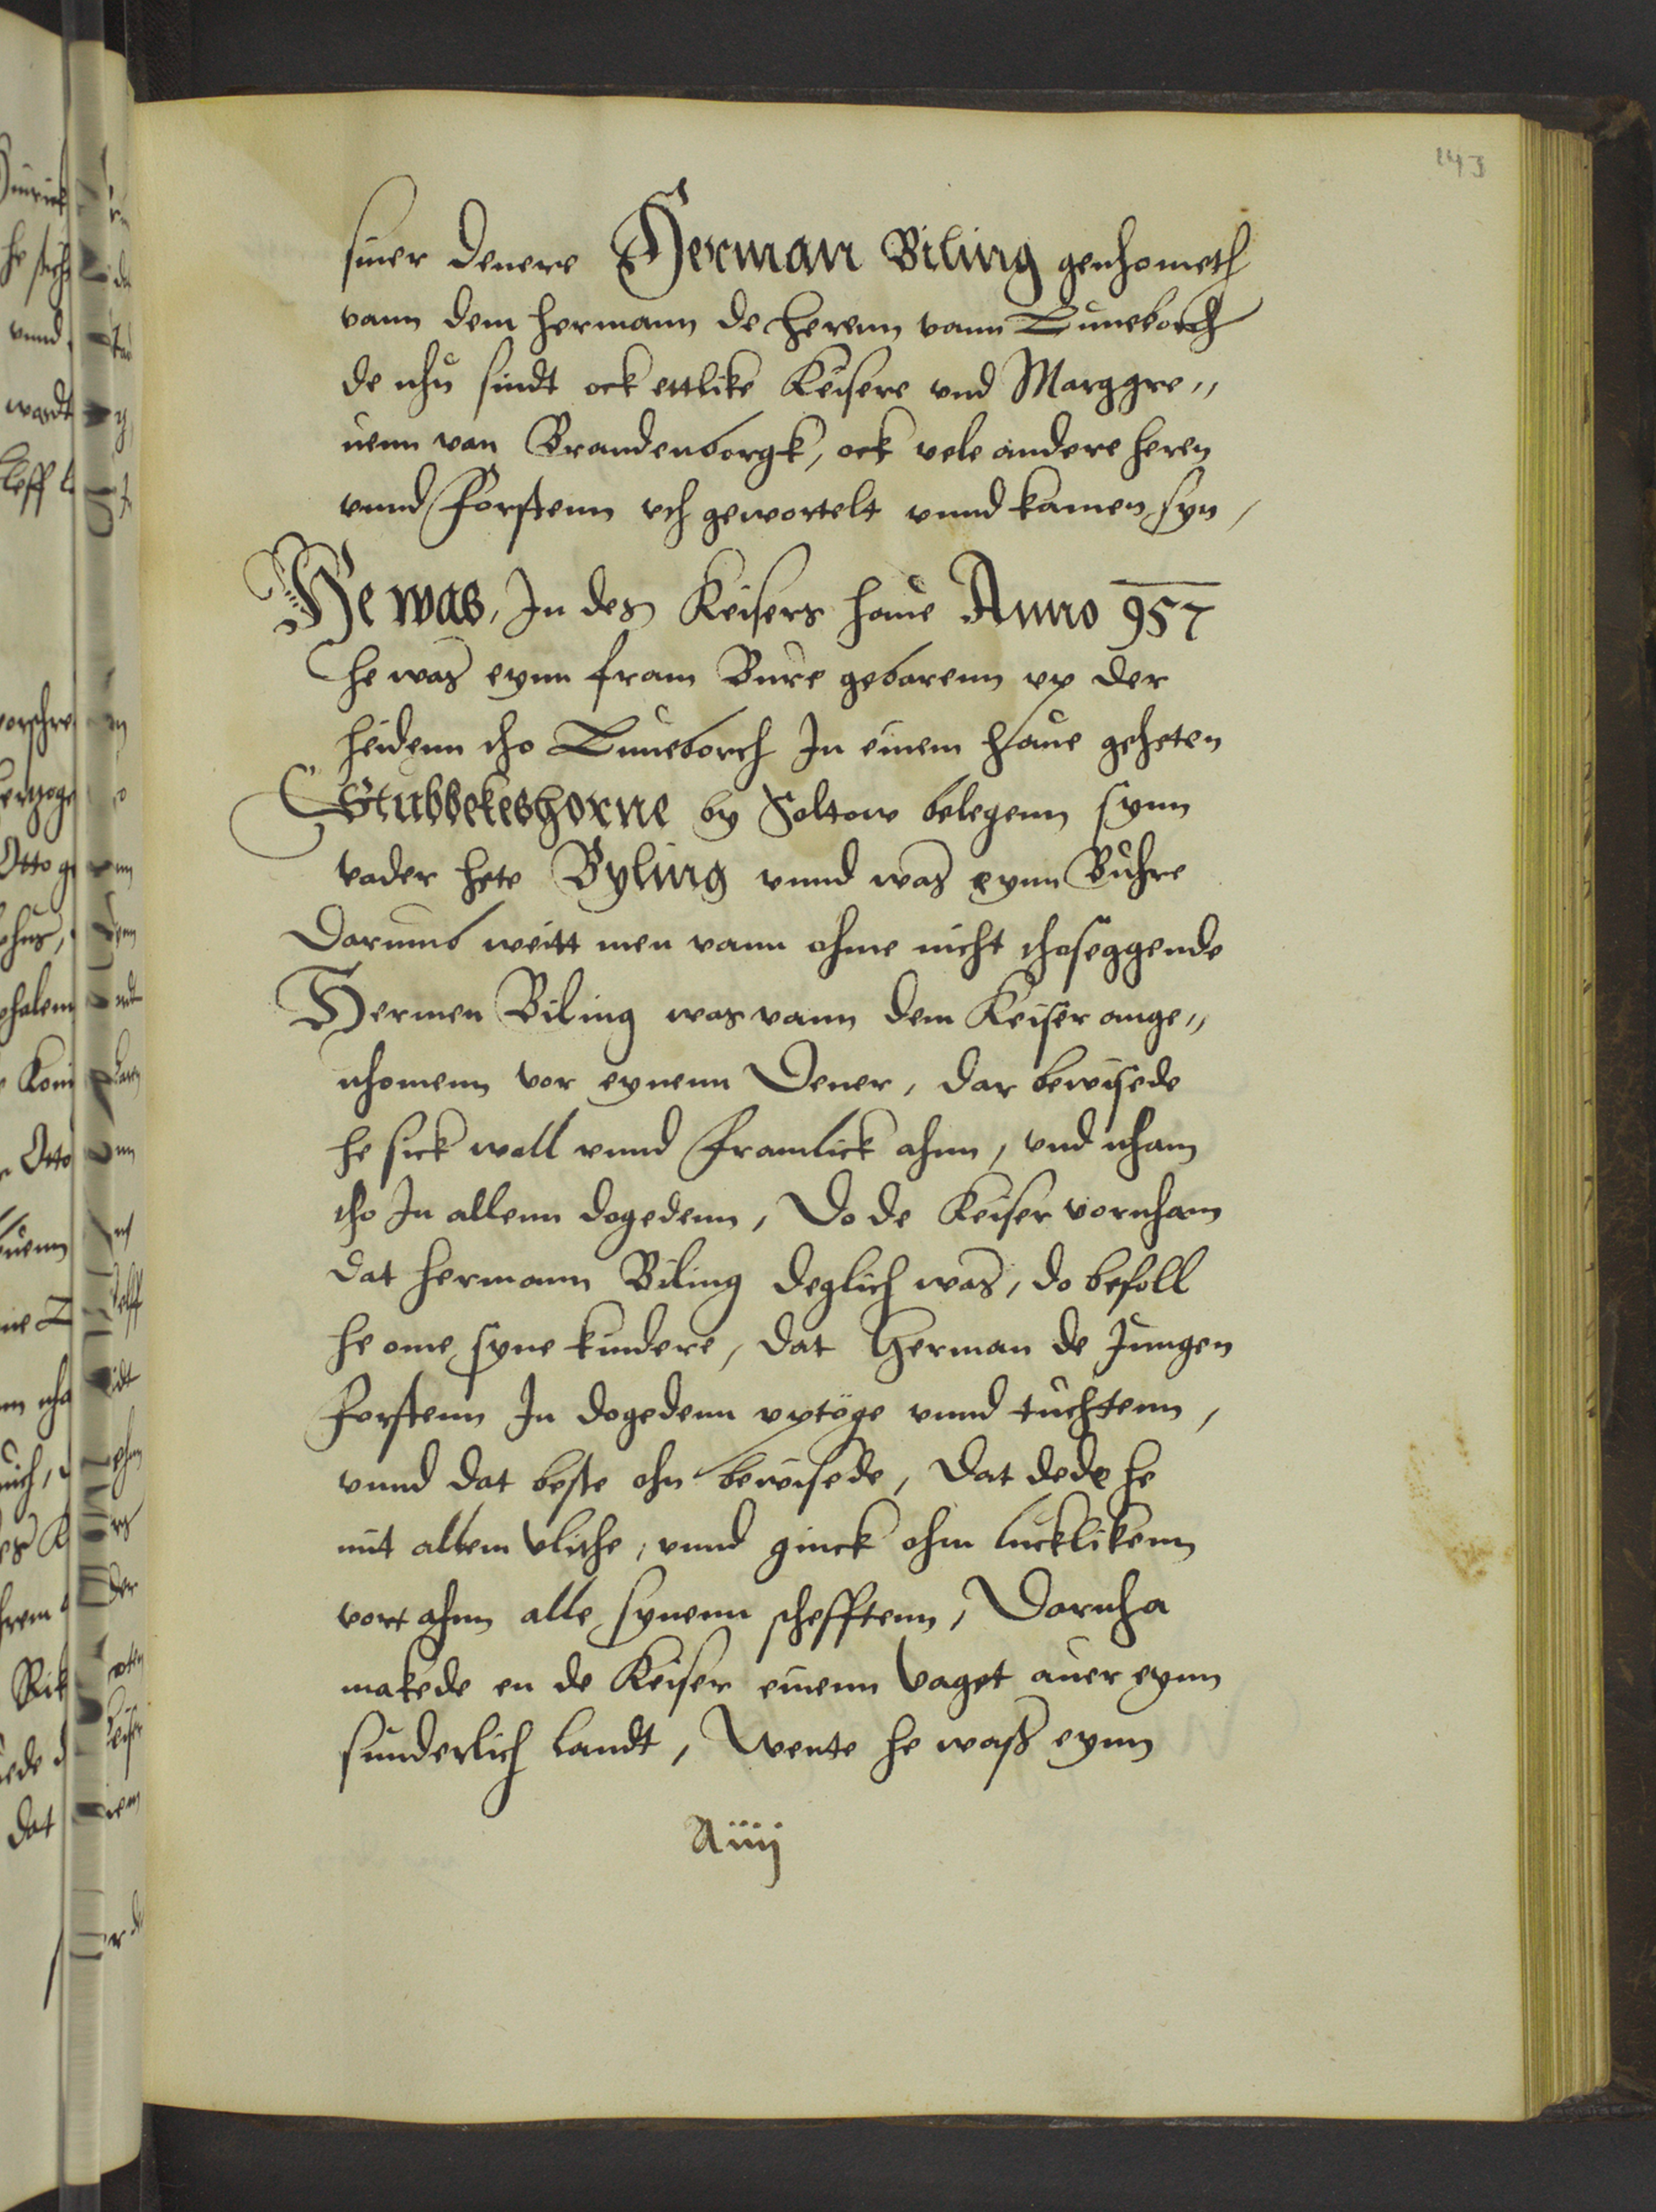 143
siner denere Herman Biling genhometh
vann dem Hermann de Herenn vann Luneborch
de nhu sindt ock ettlike Keisere vnd Marggre„
uenn van Brandenborgk, ock vele andere heren
vnnd Forstenn vth gewortelt vnnd kamen syn,
He was, In des Keisers haue Anno 957
he was eynn fram Bure gebarenn vp der
heidenn tho Luneborch In einem haue geheten
Stubbekeshorne by Soltow belegenn synn
vader hete Byling vnnd was eynn Buhre
Darumb weitt men vann ohme nicht thoseggende
Hermen Biling was vann dem Keiser ange„
nhomenn vor eynenn Dener, dar bewisede
he sick woll vnnd framlick ahnn, vnd nham
tho In allenn dogedenn, Do de Keiser vornham
dat Hermann Biling deglich was, do befoll
he ome syne kindere, dat Herman de Jungen
Forstenn In dogedenn vptöge vnnd tuchtenn,
vnnd dat beste ohn bewisede, dat dede he
mit allem vlithe, vnnd ginck ohm lucklikenn
vort ahnn alle synenn schefftenn, Darnha
makede en de Keiser einenn Vaget auer eynn
sunderlich landt, Wente he waß eynn
A iiij